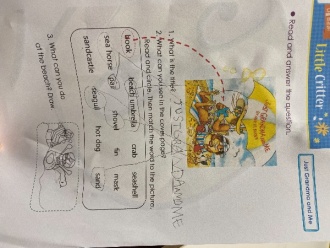 Little
Critter
Just Grandma and Me
Read and answer the question.
1. What is the title?
JUST GRANDMA AND ME
2. What can you see in the cover page?
Read and circle. Then match the word to the picture.
book beach umbrella crab seashell
sea horse pail shovel fin mask
sandcastle seagull hot dog sand
3. What can you do
at the beach? Draw.